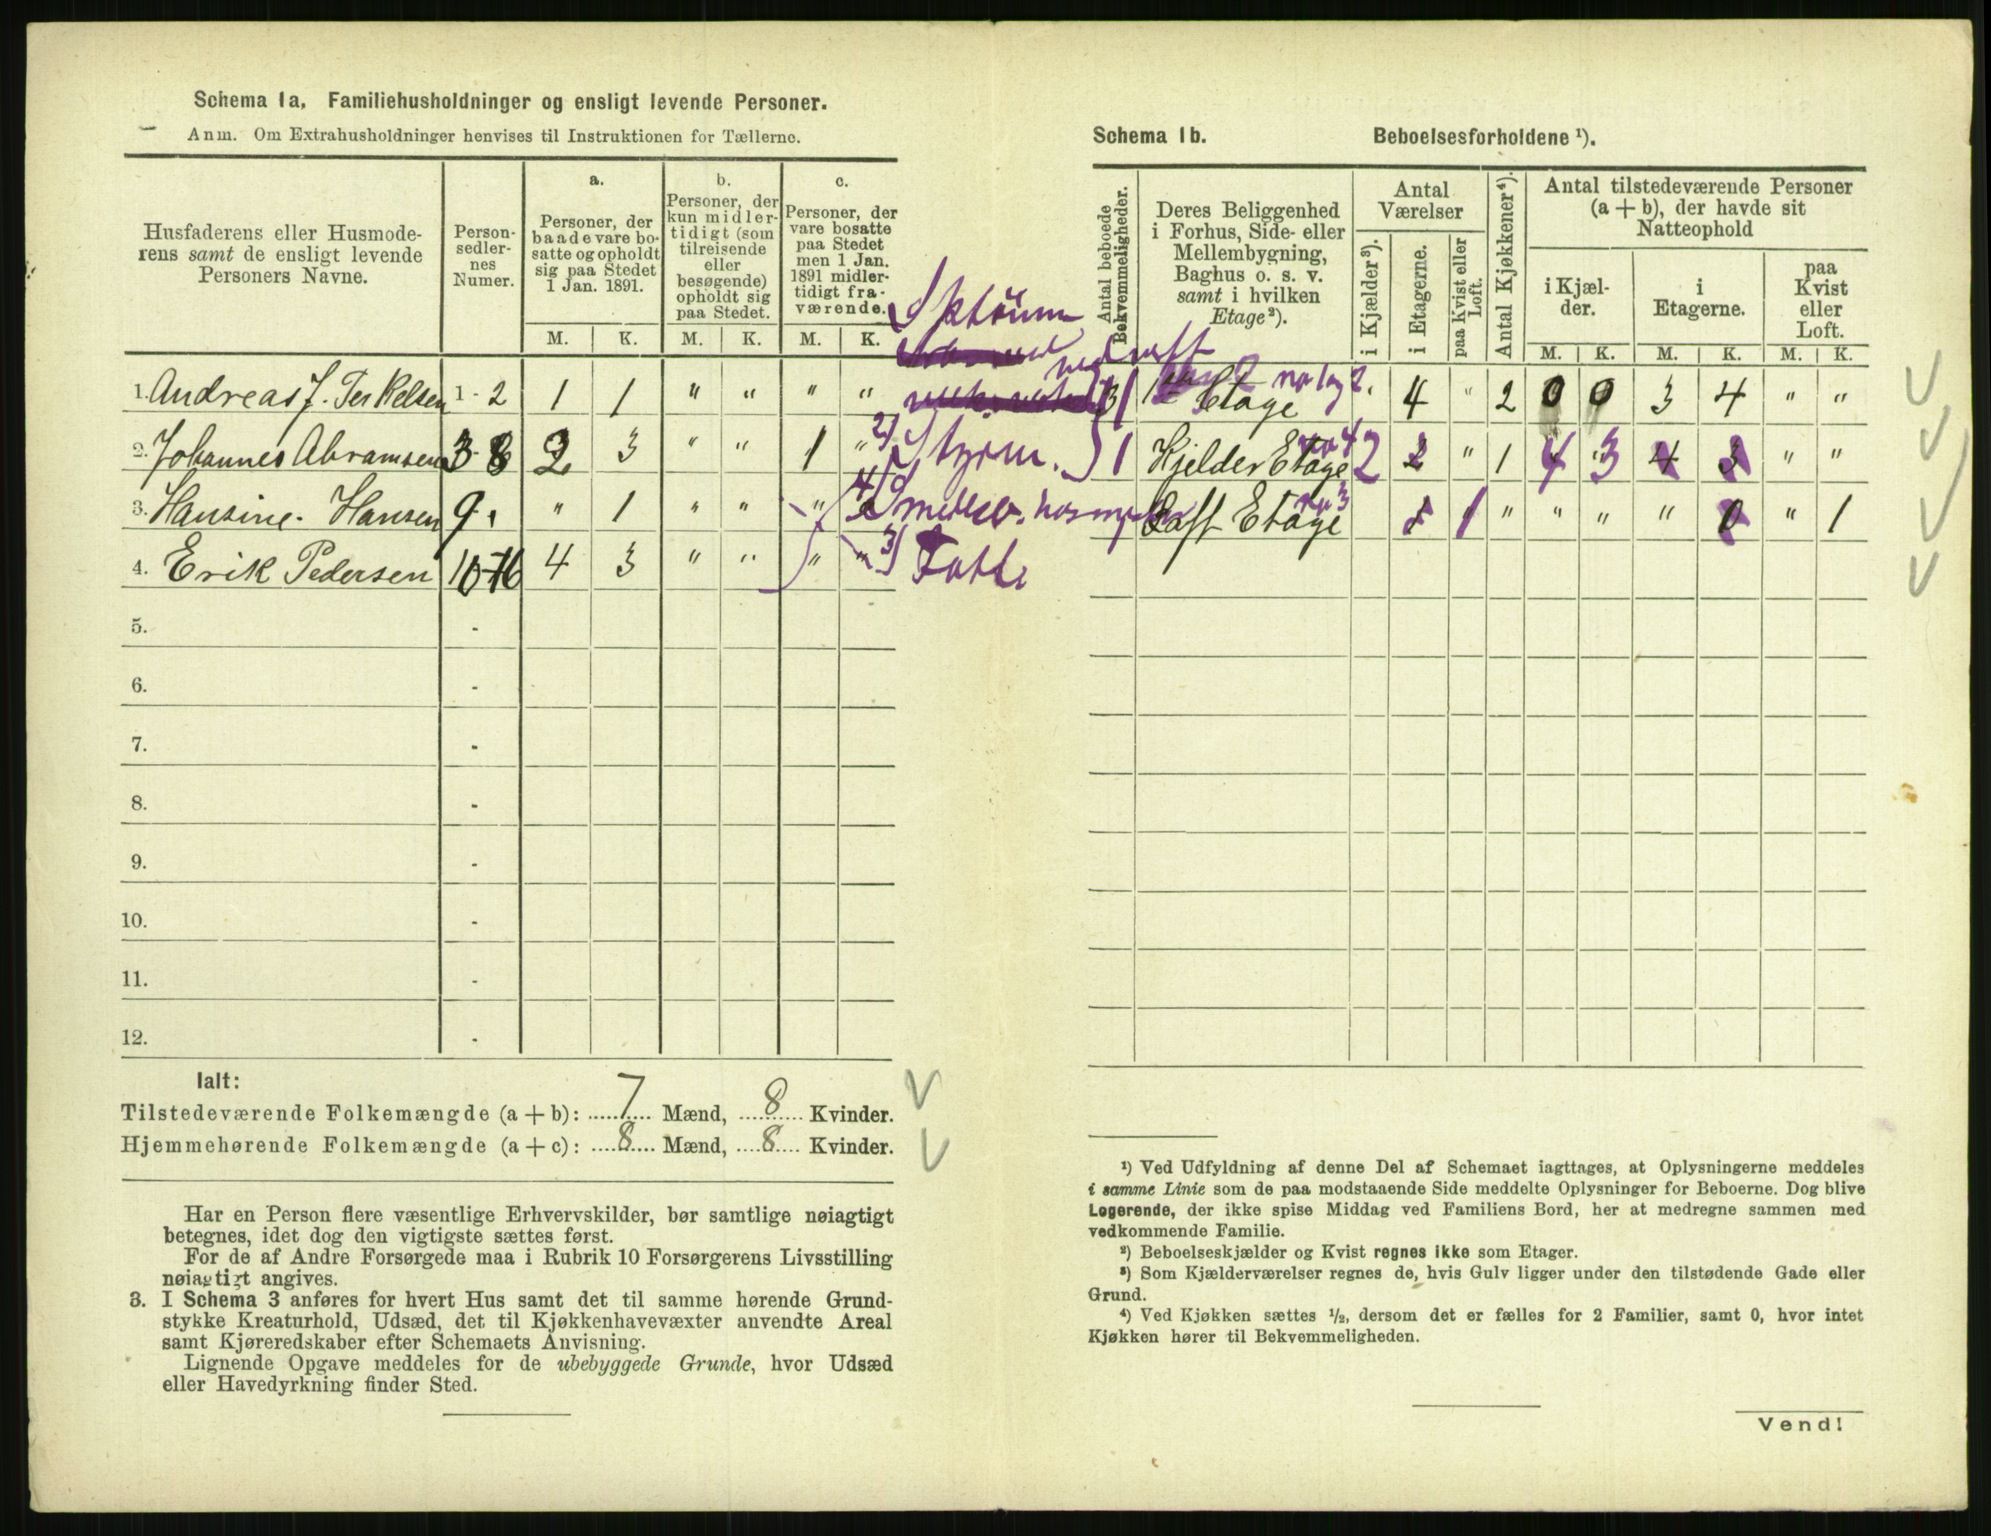 Schema 1a, Familiehusholdninger og ensligt levende Personer.
Anm. Om Extrahusholdninger henvises til Instruktionen for Tællerne.
Husfaderens eller Husmode-
rens samt de ensligt levende
Personers Navne.
Person-
sedler-
nes
Numer.
a.
Personer, der
baade vare bo-
satte og opholdt
sig paa Stedet
1 Jan. 1891.
b.
Personer, der
kun midler-
tidigt (som
tilreisende
eller
besøgende)
opholdt sig
paa Stedet.
c.
Personer, der
vare bosatte
paa Stedet
men 1 Jan.
1891 midler-
tidigt fra-
værende.
M. K. M. K. M. K.
1. Andreas J. Terkelsen 1-2 1 1 " " " "
2. Johannes Abramsen 3-8 2 3 " " 1 "
3. Hansine Hansen 9. " 1 " " "
4. Erik Pedersen 10-16 4 3 " " " "
5. -
6. -
7. -
8. -
9. -
10. -
11. -
12. -
Ialt:
Tilstedeværende Folkemængde (a + b): 7 Mænd, 8 Kvinder.
Hjemmehørende Folkemængde (a + c): 8 Mænd, 8 Kvinder.
Har en Person flere væsentlige Erhvervskilder, bør samtlige nøiagtigt
betegnes, idet dog den vigtigste sættes først.
For de af Andre Forsørgede maa i Rubrik 10 Forsørgerens Livsstilling
nøiagtigt angives.
3. I Schema 3 anføres for hvert Hus samt det til samme hørende Grund-
stykke Kreaturhold, Udsæd, det til Kjøkkenhavevæxter anvendte Areal
samt Kjøreredskaber efter Schemaets Anvisning.
Lignende Opgave meddeles for de ubebyggede Grunde, hvor Udsæd
eller Havedyrkning finder Sted.
Schema 1b. Beboelsesforholdene ¹).
Antal beboede
Bekvemmeligheder.
Deres Beliggenhed
i Forhus, Side- eller
Mellembygning,
Baghus o. s. v.
samt i hvilken
Etage²).
Antal
Værelser
i Kjælder³).
i Etagerne.
paa Kvist eller
Loft.
Antal Kjøkkener⁴).
Antal tilstedeværende Personer
(a + b), der havde sit
Natteophold
i Kjæl-
der.
i
Etagerne.
paa
Kvist
eller
Loft.
M. K. M. K. M. K.
Etage 4 " 2 0 0 3 4 " "
1 Kjelder Etage 2 " 1 4 3 4 3 " "
Loft Etage 1 " " " " 0 " 1
¹) Ved Udfyldning af denne Del af Schemaet iagttages, at Oplysningerne meddeles
i samme Linie som de paa modstaaende Side meddelte Oplysninger for Beboerne. Dog blive
Logerende, der ikke spise Middag ved Familiens Bord, her at medregne sammen med
vedkommende Familie.
²) Beboelseskjælder og Kvist regnes ikke som Etager.
³) Som Kjælderværelser regnes de, hvis Gulv ligger under den tilstødende Gade eller
Grund.
⁴) Ved Kjøkken sættes ½, dersom det er fælles for 2 Familier, samt 0, hvor intet
Kjøkken hører til Bekvemmeligheden.
Vend!